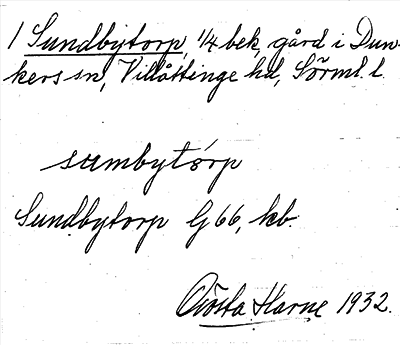 1 Sundbytorp, 1/4 bek, gård i Dun-
kers sn, Villåttinge hd, Sörml. l.
sambytórp
Sundbytorp G 66, kb.
Gösta Harne 1932.